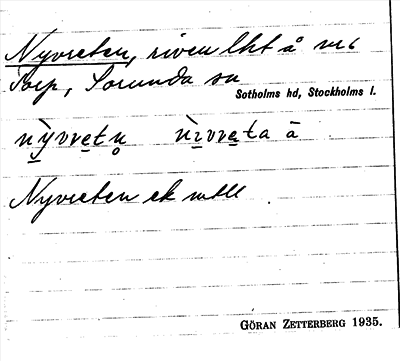 Nyvreten, riven lht å nr 6
Torp, Sorunda sn
Sotholms hd, Stockholms l.
nỳvvretn̥ nìvvreta ä
Nyvreten ek
GÖRAN ZETTERBERG 1935.